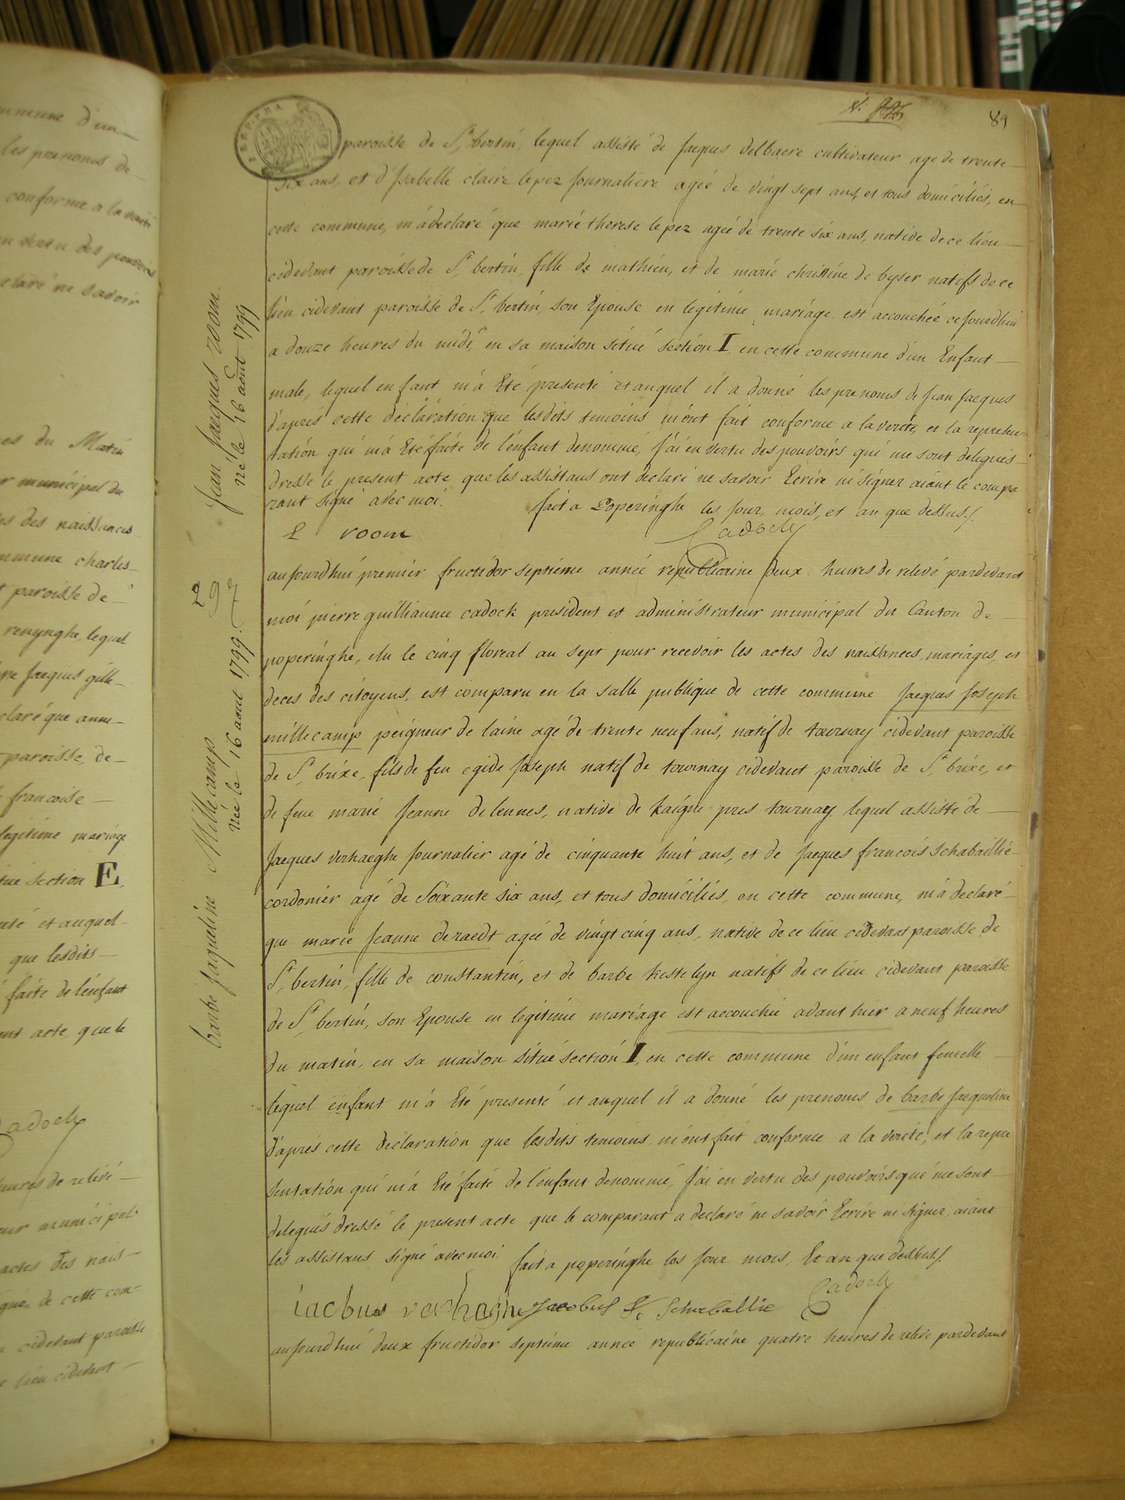 89
paroisse de St bertin, lequel assisté de Jacques delbaere cultivateur agé de trente
six ans, et d'Isabelle claire lepez Journaliere agée de vingt sept ans, et tous domiciliés, en
cette commune, m'a declaré que marie therese lepez agée de trente six ans, native de ce lieu
cidevant paroisse de St bertin, fille de mathieu, et de marie christine de byser natifs de ce
lieu cidevant paroisse de St bertin, son Epouse en legitime mariage est accouchée ce Jourdhui
a douze heures du midi, en sa maison situé section I, en cette commune d'un Enfant
male, lequel enfant m'a Eté presenté et auquel il a donné les prenoms de Jean Jacques
d'apres cette déclaration que lesdits temoins m'ont fait conforme a la verité, et la represen-
tation qui m'a Eté faite de l'enfant denommé, J'ai en vertu des pouvoirs qui me sont delegués
dressé le present acte, que les assistans ont declaré ne savoir Ecrire ni signer aiant le compa
rant signé avec moi. fait a Poperinghe les Jour, mois, et an que dessus.
voom Cadock
Jean Jacques voom
né le 16 août 1799
297
aujourdhui premier fructidor septieme année republicaine deux heures de relevé pardevant
moi pierre guilliaume cadock president et administrateur municipal du Canton de
poperinghe, elu le cinq floreal an sept pour recevoir les actes des naissances, mariages, et
deces des citoyens, est comparu en la salle publique de cette commune Jacques Joseph
millecamp peigneur de laine agé de trente neuf ans, natif de tournay cidevant paroisse
de St brixe, fils de feu egide Joseph natif de tournay cidevant paroisse de St brixe, et
de feue marie Jeanne delennes, native de kaigne pres tournay lequel assisté de
Jacques verhaeghe Journalier agé de cinquante huit ans, et de Jacques francois schabaillie
cordonier agé de Soixante six ans, et tous domiciliés, en cette commune, m'a declaré
que marie Jeanne deraedt agée de vingt cinq ans, native de ce lieu cidevant paroisse de
St bertin, fille de constantin, et de barbe kestelyn natifs de ce lieu cidevant paroisse
de St bertin, son Epouse en legitime mariage est accouchée avant hier a neuf heures
du matin, en sa maison situé section I, en cette commune d'un enfant femelle
lequel enfant m'a Eté presenté et auquel il a donné les prenoms de barbe Jacqueline
d'apres cette déclaration que lesdits temoins m'ont fait conforme a la verité, et la repre
sentation qui m'a Eté faite de l'enfant denommé, J'ai en vertu des pouvoirs qui me sont
delegués dressé le present acte que le comparant a declaré ne savoir Ecrire ni signer, aiant
les assistans signé avec moi fait a poperinghe les Jour mois, et an que dessus.
Jacobus Schaballie Cadock
barbe jaqueline Millecamp
née le 16 aout 1799.
aujourdhui deux fructidor septieme année republicaine quatre heures de relevé pardevant